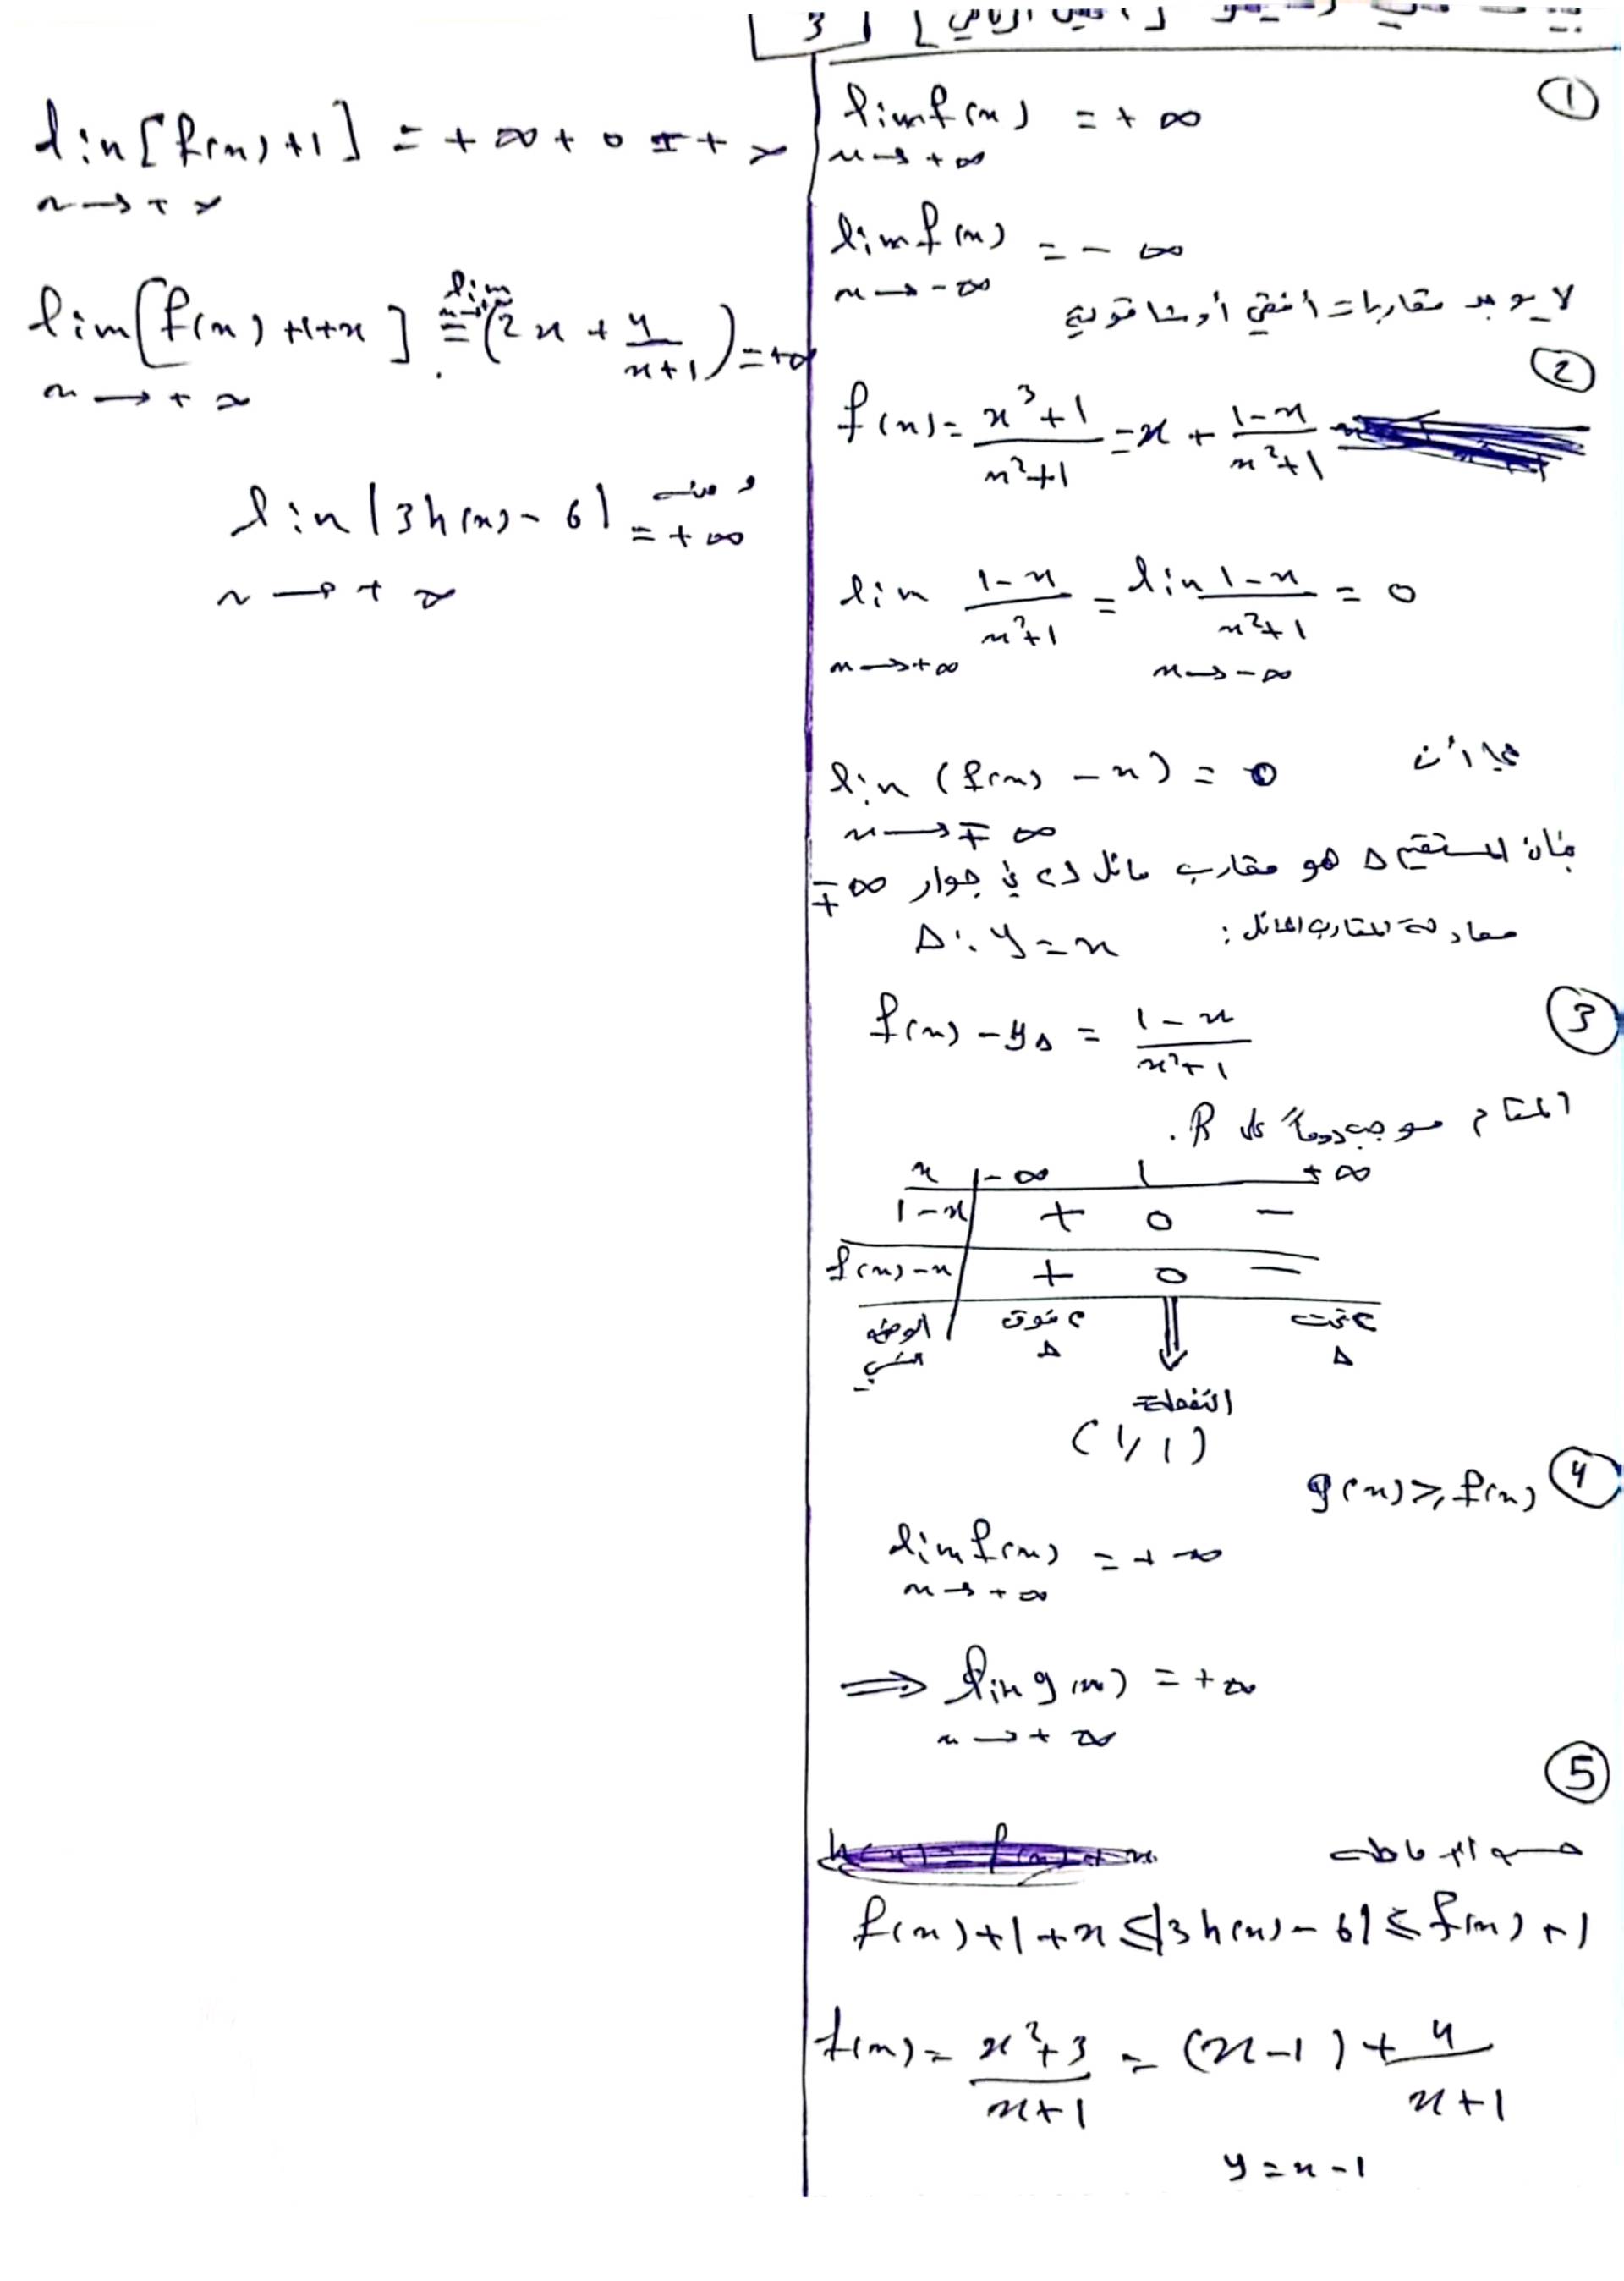 3
①
lim f(x) = + ∞
x → + ∞
lim f(x) = - ∞
x → - ∞
لا يوجد مقاربات أفقي أو شاقولية
②
f(x) = (x³+1)/(x²+1) = x + (1-x)/(x²+1)
lim (1-x)/(x²+1) = lin (1-x)/(x²+1) = 0
x → +∞ x → -∞
بما أن
lin (f(x) - x) = 0
x → ∓ ∞
فإن المستقيم Δ هو مقارب مائل لـ C في جوار ∓∞
معادلة المقارب المائل : Δ: y = x
③
f(x) - yΔ = (1-x)/(x²+1)
المقام موجب دوماً على R.
x | -∞ 1 +∞
1-x | + 0 -
f(x)-x | + 0 -
الوضع النسبي | C فوق Δ C تحت Δ
النقطة
(1, 1)
④
g(x) ⩾ f(x)
lim f(x) = + ∞
x → + ∞
⟹ lin g(x) = + ∞
x → + ∞
⑤
حسب الإحاطة
f(x)+1+x ≤ |3h(x) - 6| ≤ f(x) + 1
f(x) = (x²+3)/(x+1) = (x-1) + 4/(x+1)
y = x - 1
lin [f(x)+1] = + ∞ + 0 = + ∞
x → + ∞
lim [f(x)+1+x] = lim (2x + 4/(x+1)) = +∞
x → + ∞
ومنه
lin |3h(x) - 6| = + ∞
x → + ∞